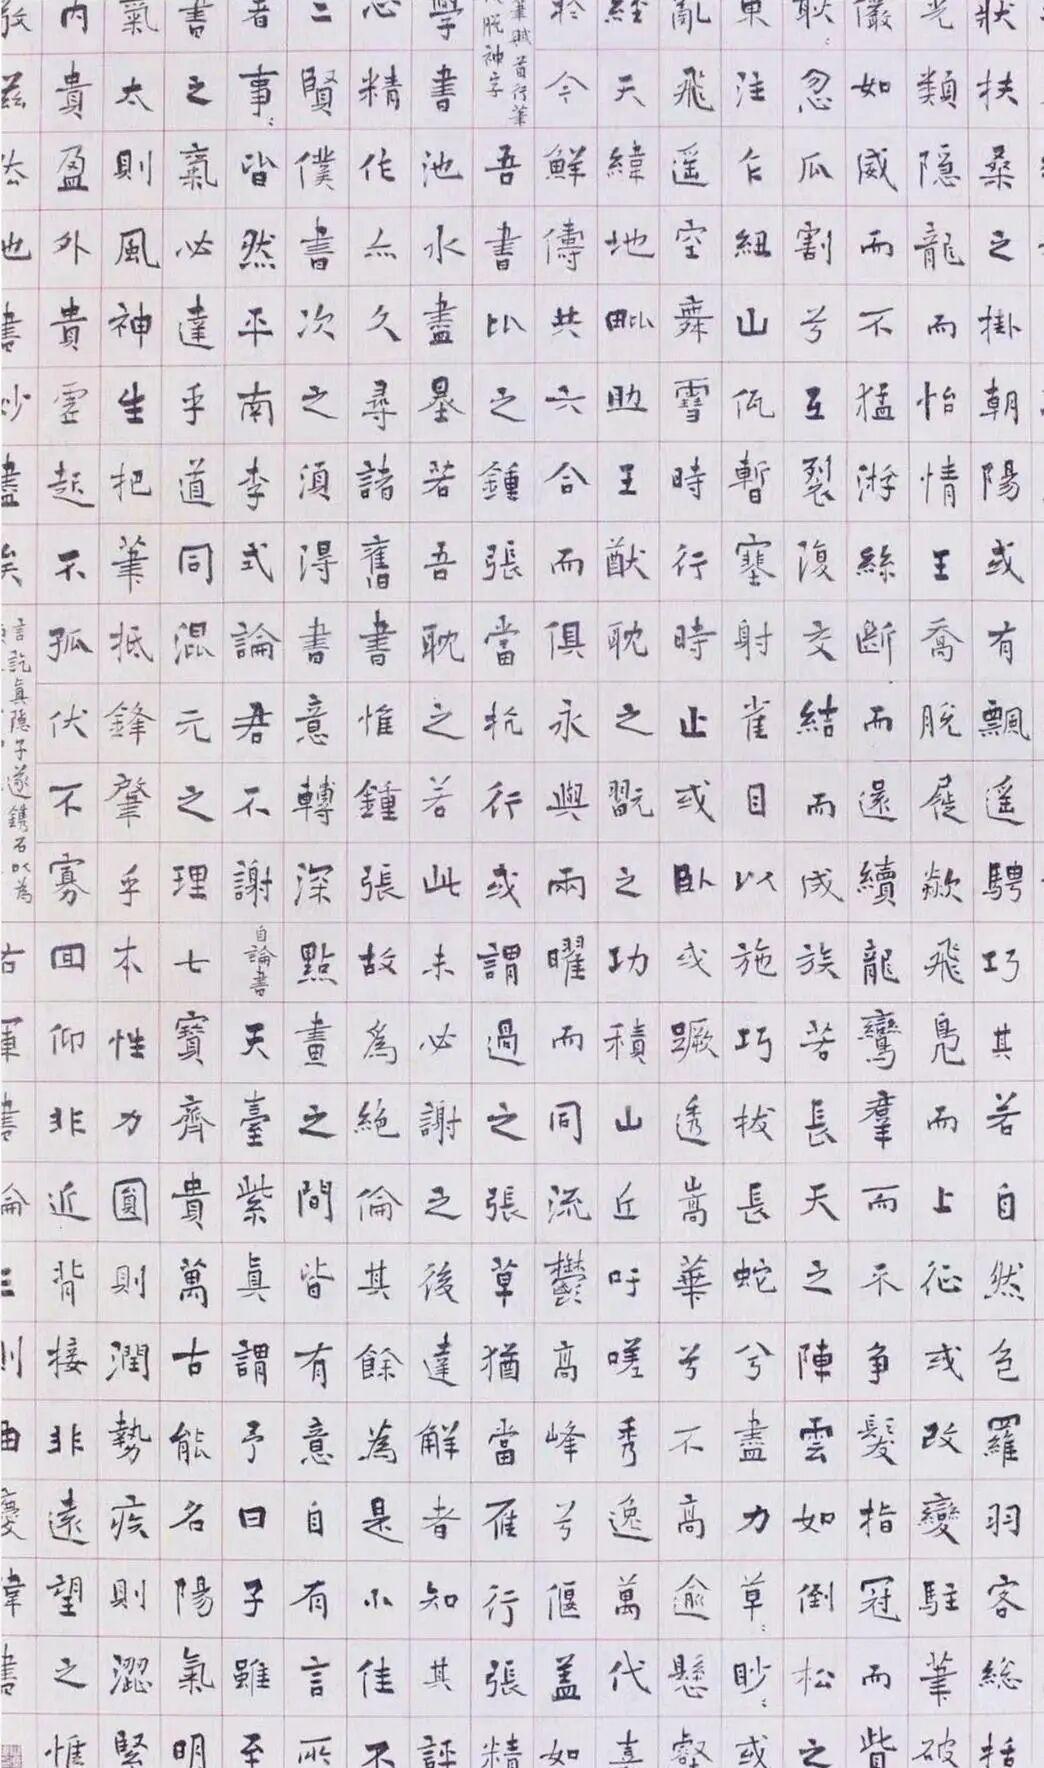 狀扶桑之掛朝陽或有飄遥騁巧其若自然包羅羽客総括
光類隱龍而怡情王喬脫屣欻飛鳧而上征或改變駐筆破
儼如威而不猛游絲斷而還續龍鸞羣而不争髮指冠而眥
耿忽瓜割兮互裂復交結而成族若長天之陣雲如倒松之
東注乍紐山暫塞射雀目以施巧拔長蛇兮盡力草眇或
亂飛遥空舞雪時行時止或卧或蹶透嵩華兮不高逾懸壑
經天緯地毗助王猷耽之翫之功積山丘吁嗟秀逸萬代嘉
於今鮮儔共六合而俱永與兩曜而同流鬱高峰兮偃蓋如
筆賦首行筆
脫神字
吾書比之鍾張當抗行或謂過之張草猶當雁行張精
學書池水盡墨若吾耽之若此未必謝之後達解者知其評
心精作亦久尋諸舊書惟鍾張故為絕倫其餘為是小佳不
二賢僕書次之須得書意轉深點畫之間皆有意自有言所
者事皆然平南李式論君不謝自論書天臺紫真謂予曰子雖至
書之氣必達乎道同混元之理七寶齊貴萬古能名陽氣明
氣太則風神生把筆抵鋒肇乎本性力圓則潤勢疾則澀緊
内貴盈外貴虛起不孤伏不寡回仰非近背接非遠望之惟
敬兹法也書妙盡矣
言訖真隱子遂鐫石以為
右軍書論三則曲慶偉書